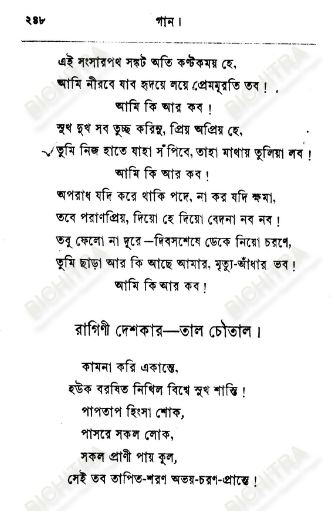 ২৪৮
গান।
এই সংসারপথ সঙ্কট অতি কণ্টকময় হে,
আমি নীরবে যাব হৃদয়ে লয়ে প্রেমমূরতি তব!
আমি কি আর কব!
সুখ দুখ সব তুচ্ছ করিনু, প্রিয় অপ্রিয় হে,
তুমি নিজ হাতে যাহা সঁপিবে, তাহা মাথায় তুলিয়া লব!
আমি কি আর কব!
অপরাধ যদি করে থাকি পদে, না কর যদি ক্ষমা,
তবে পরাণপ্রিয়, দিয়ো হে দিয়ো বেদনা নব নব!
তবু ফেলো না দূরে—দিবসশেষে ডেকে নিয়ো চরণে,
তুমি ছাড়া আর কি আছে আমার, মৃত্যু-আঁধার ভব!
আমি কি আর কব!
রাগিণী দেশকার—তাল চৌতাল।
কামনা করি একান্তে,
হউক বরষিত নিখিল বিশ্বে সুখ শান্তি!
পাপতাপ হিংসা শোক,
পাসরে সকল লোক,
সকল প্রাণী পায় কূল,
সেই তব তাপিত-শরণ অভয়-চরণ-প্রান্তে!
BICHITRA